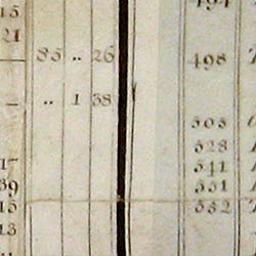 15
21
85 .. 26 498
– .. 1 38
503
528
17 541
39 551
15 552
13